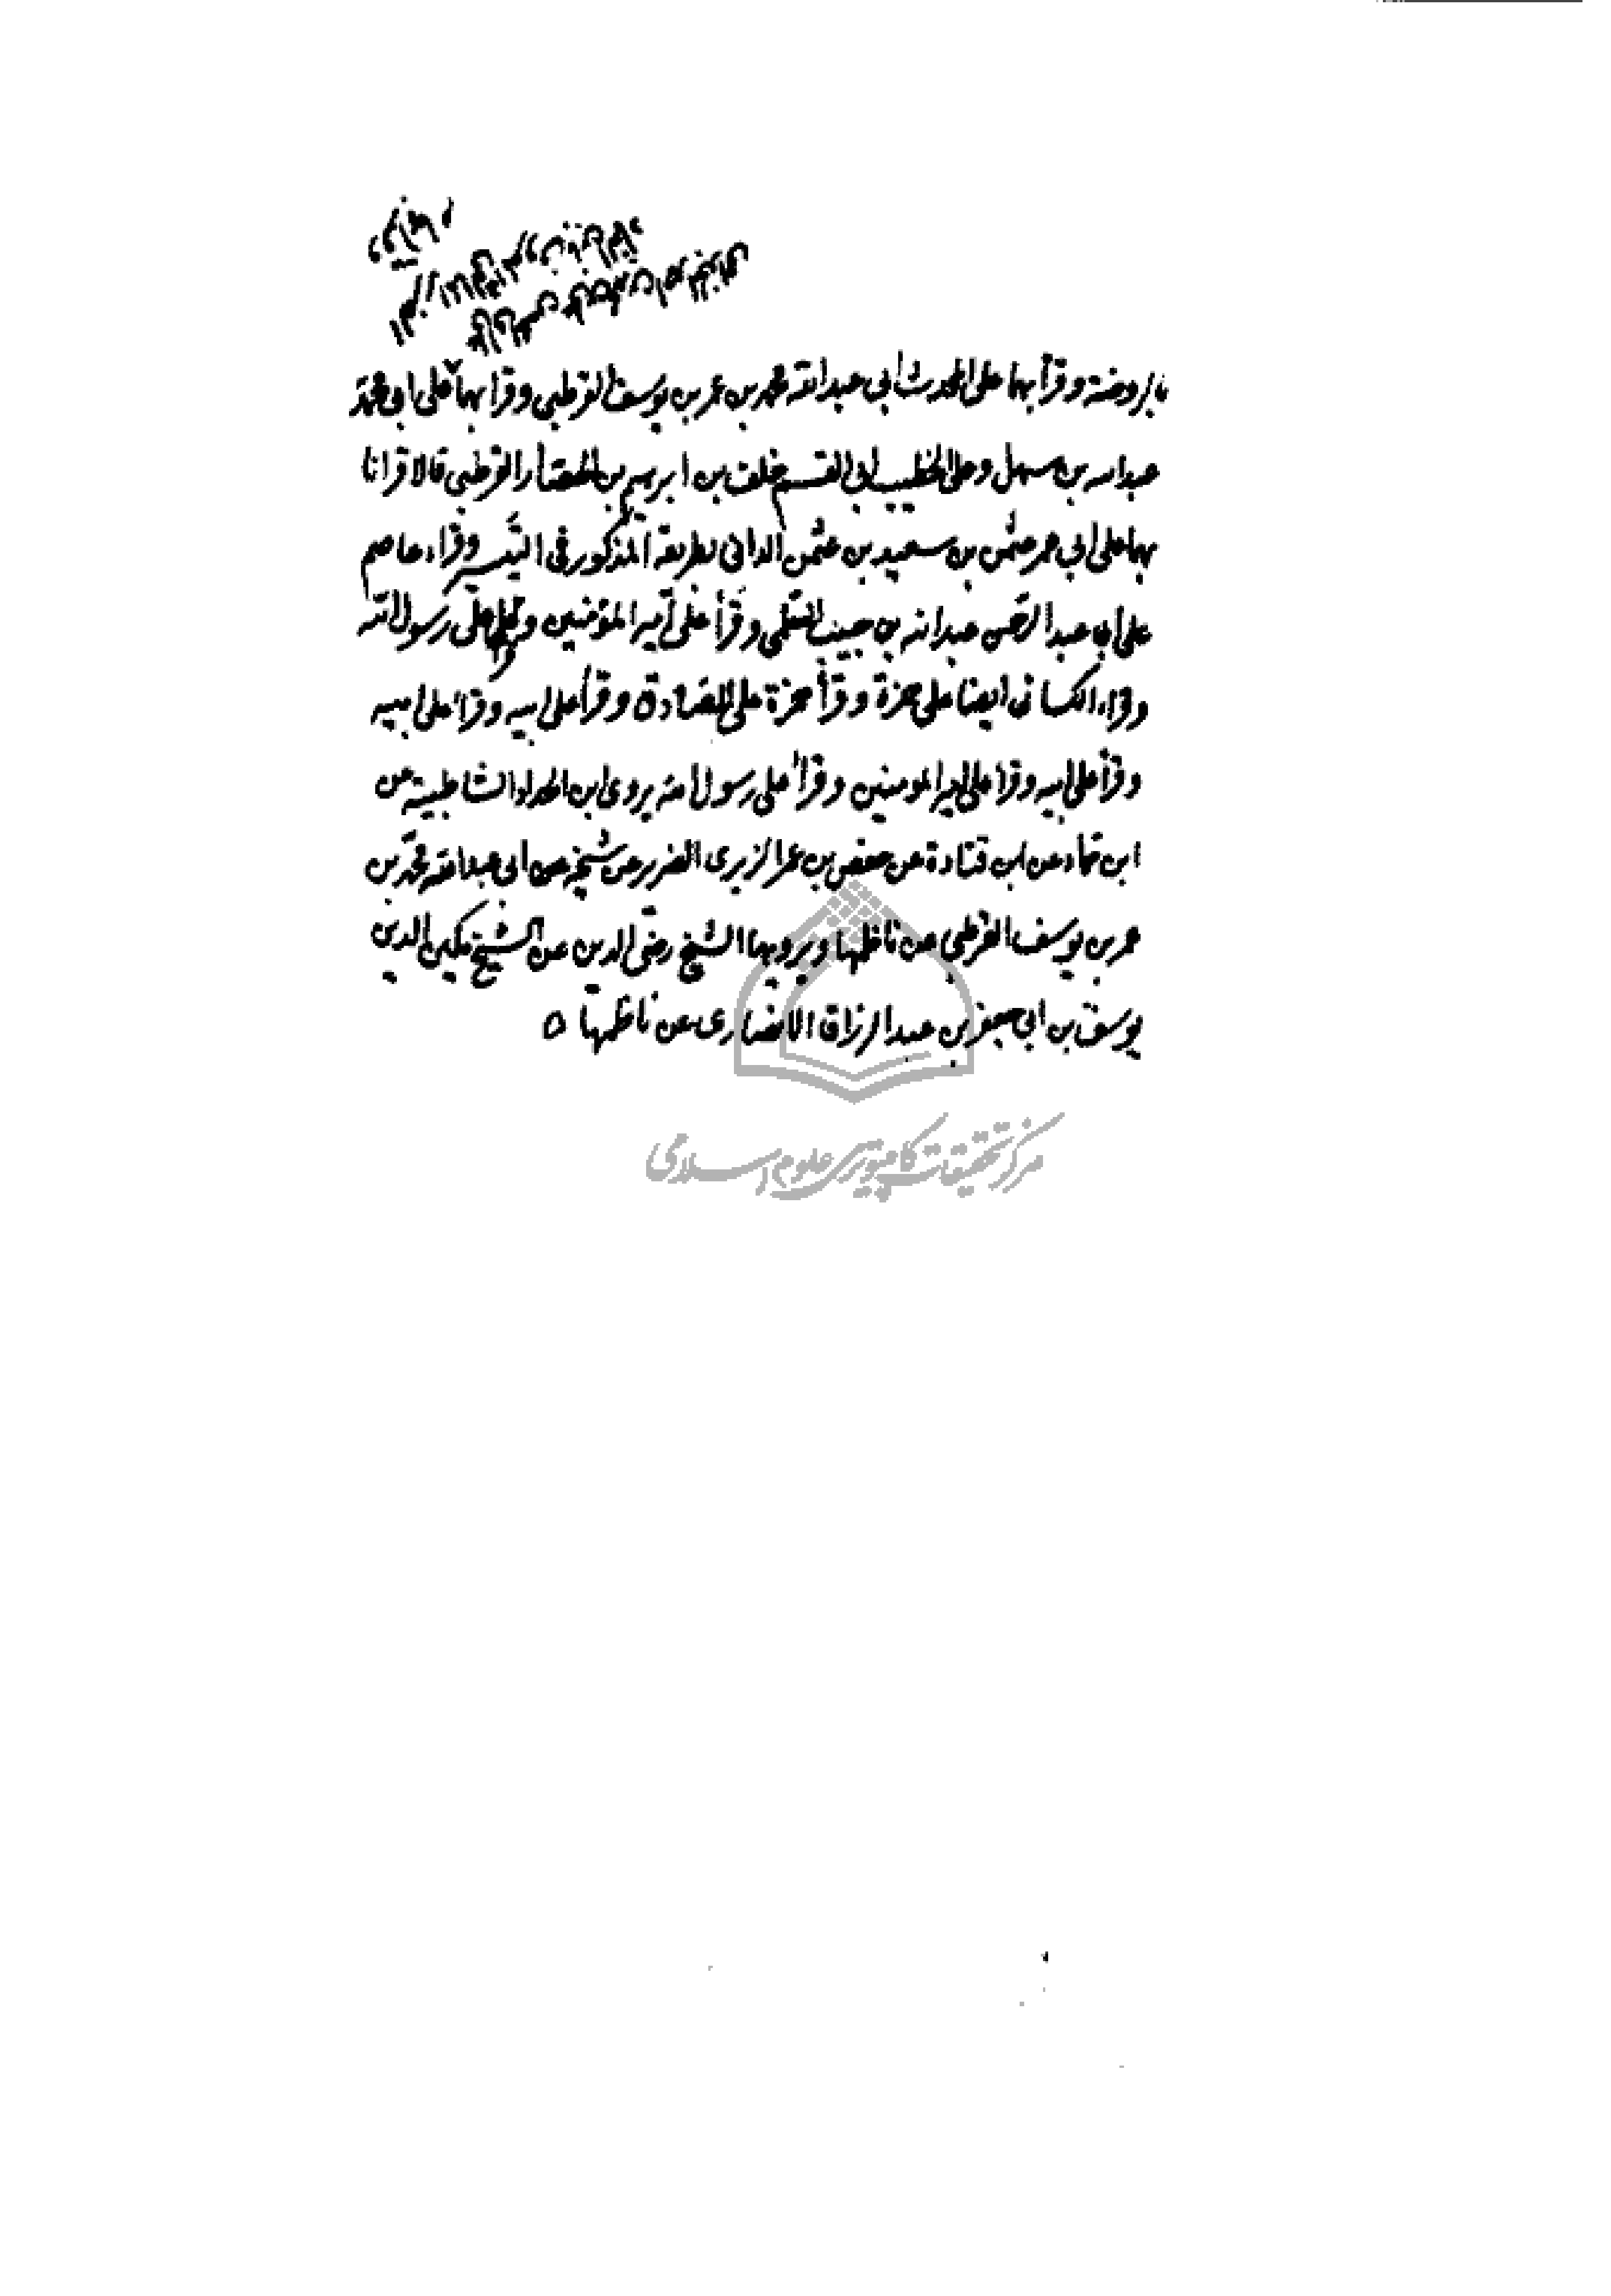 بالروضة وقرأ بها على المحدث ابي عبدالله محمد بن عمر بن يوسف القرطبي وقرا بها على ابي محمد
عبدالله بن سهل وعلى الخطيب ابي القسم خلف بن ابرهيم بن الحصار القرطبي قالا قرانا
بها على ابي عمر عثمن بن سعيد بن عثمن الدانى بطريقه المذكور فى التيسير وقراء عاصم
على ابي عبد الرحمن عبدالله بن حبيب السلمى وقرأ على امير المؤمنين على رسول الله
وقراء الكسائى ايضا على حمزة وقرأ حمزة على الصادق وقرأ على ابيه وقرا على ابيه
وقرأ على ابيه وقرا على امير المومنين وقرأ على رسول الله يروى ابن الحداد الشاطبية عن
ابن حماد عن ابن قتادة عن حفص بن عمر الزبرى الضرير عن شيخه عن ابي عبدالله محمد بن
عمر بن يوسف القرطبي عن ناظمها ويرويها الشيخ رضى الدين عن الشيخ مكين الدين
يوسف بن ابي جعفر بن عبد الرزاق الانصارى عن ناظمها ٥
مركز تحقيقات كامپيوترى علوم اسلامى